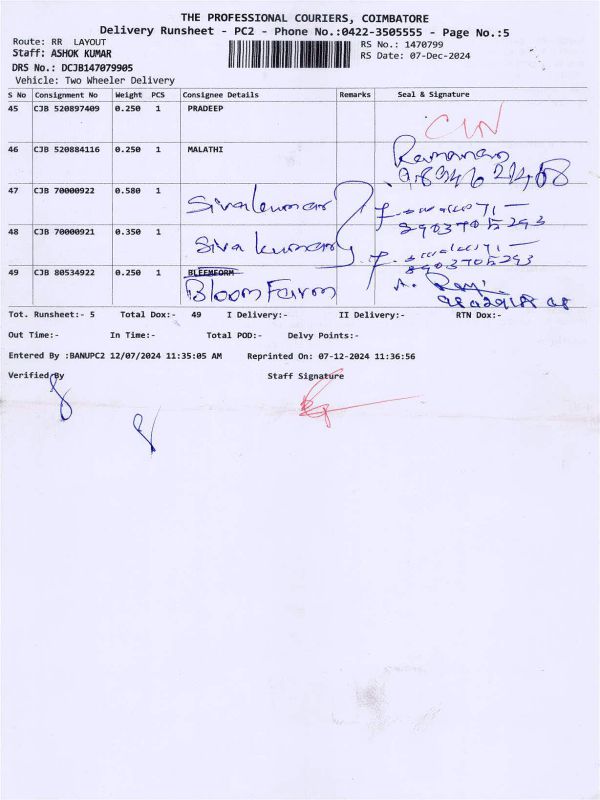 THE PROFESSIONAL COURIERS, COIMBATORE
Delivery Runsheet - PC2 - Phone No.:0422-3505555 - Page No.:5
Route: RR LAYOUT
RS No.: 1470799
Staff: ASHOK KUMAR
RS Date: 07-Dec-2024
DRS No.: DCJB147079905
Vehicle: Two Wheeler Delivery
S No Consignment No Weight PCS Consignee Details Remarks Seal & Signature
45 CJB 520897409 0.250 1 PRADEEP
46 CJB 520884116 0.250 1 MALATHI
47 CJB 70000922 0.580 1 Sivakumar
8903705293
48 CJB 70000921 0.350 1 Siva kumar
8903705293
49 CJB 80534922 0.250 1 BLEEMFORM
Bloom Farm
Tot. Runsheet:- 5 Total Dox:- 49 I Delivery:- II Delivery:- RTN Dox:-
Out Time:- In Time:- Total POD:- Delvy Points:-
Entered By :BANUPC2 12/07/2024 11:35:05 AM Reprinted On: 07-12-2024 11:36:56
Verified By Staff Signature